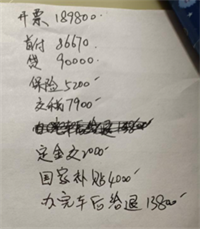 开票 189800
首付 86670
贷 90000
保险 5200
交税 7900
定金交 2000
国家补贴 4000
办完车后给退 13800